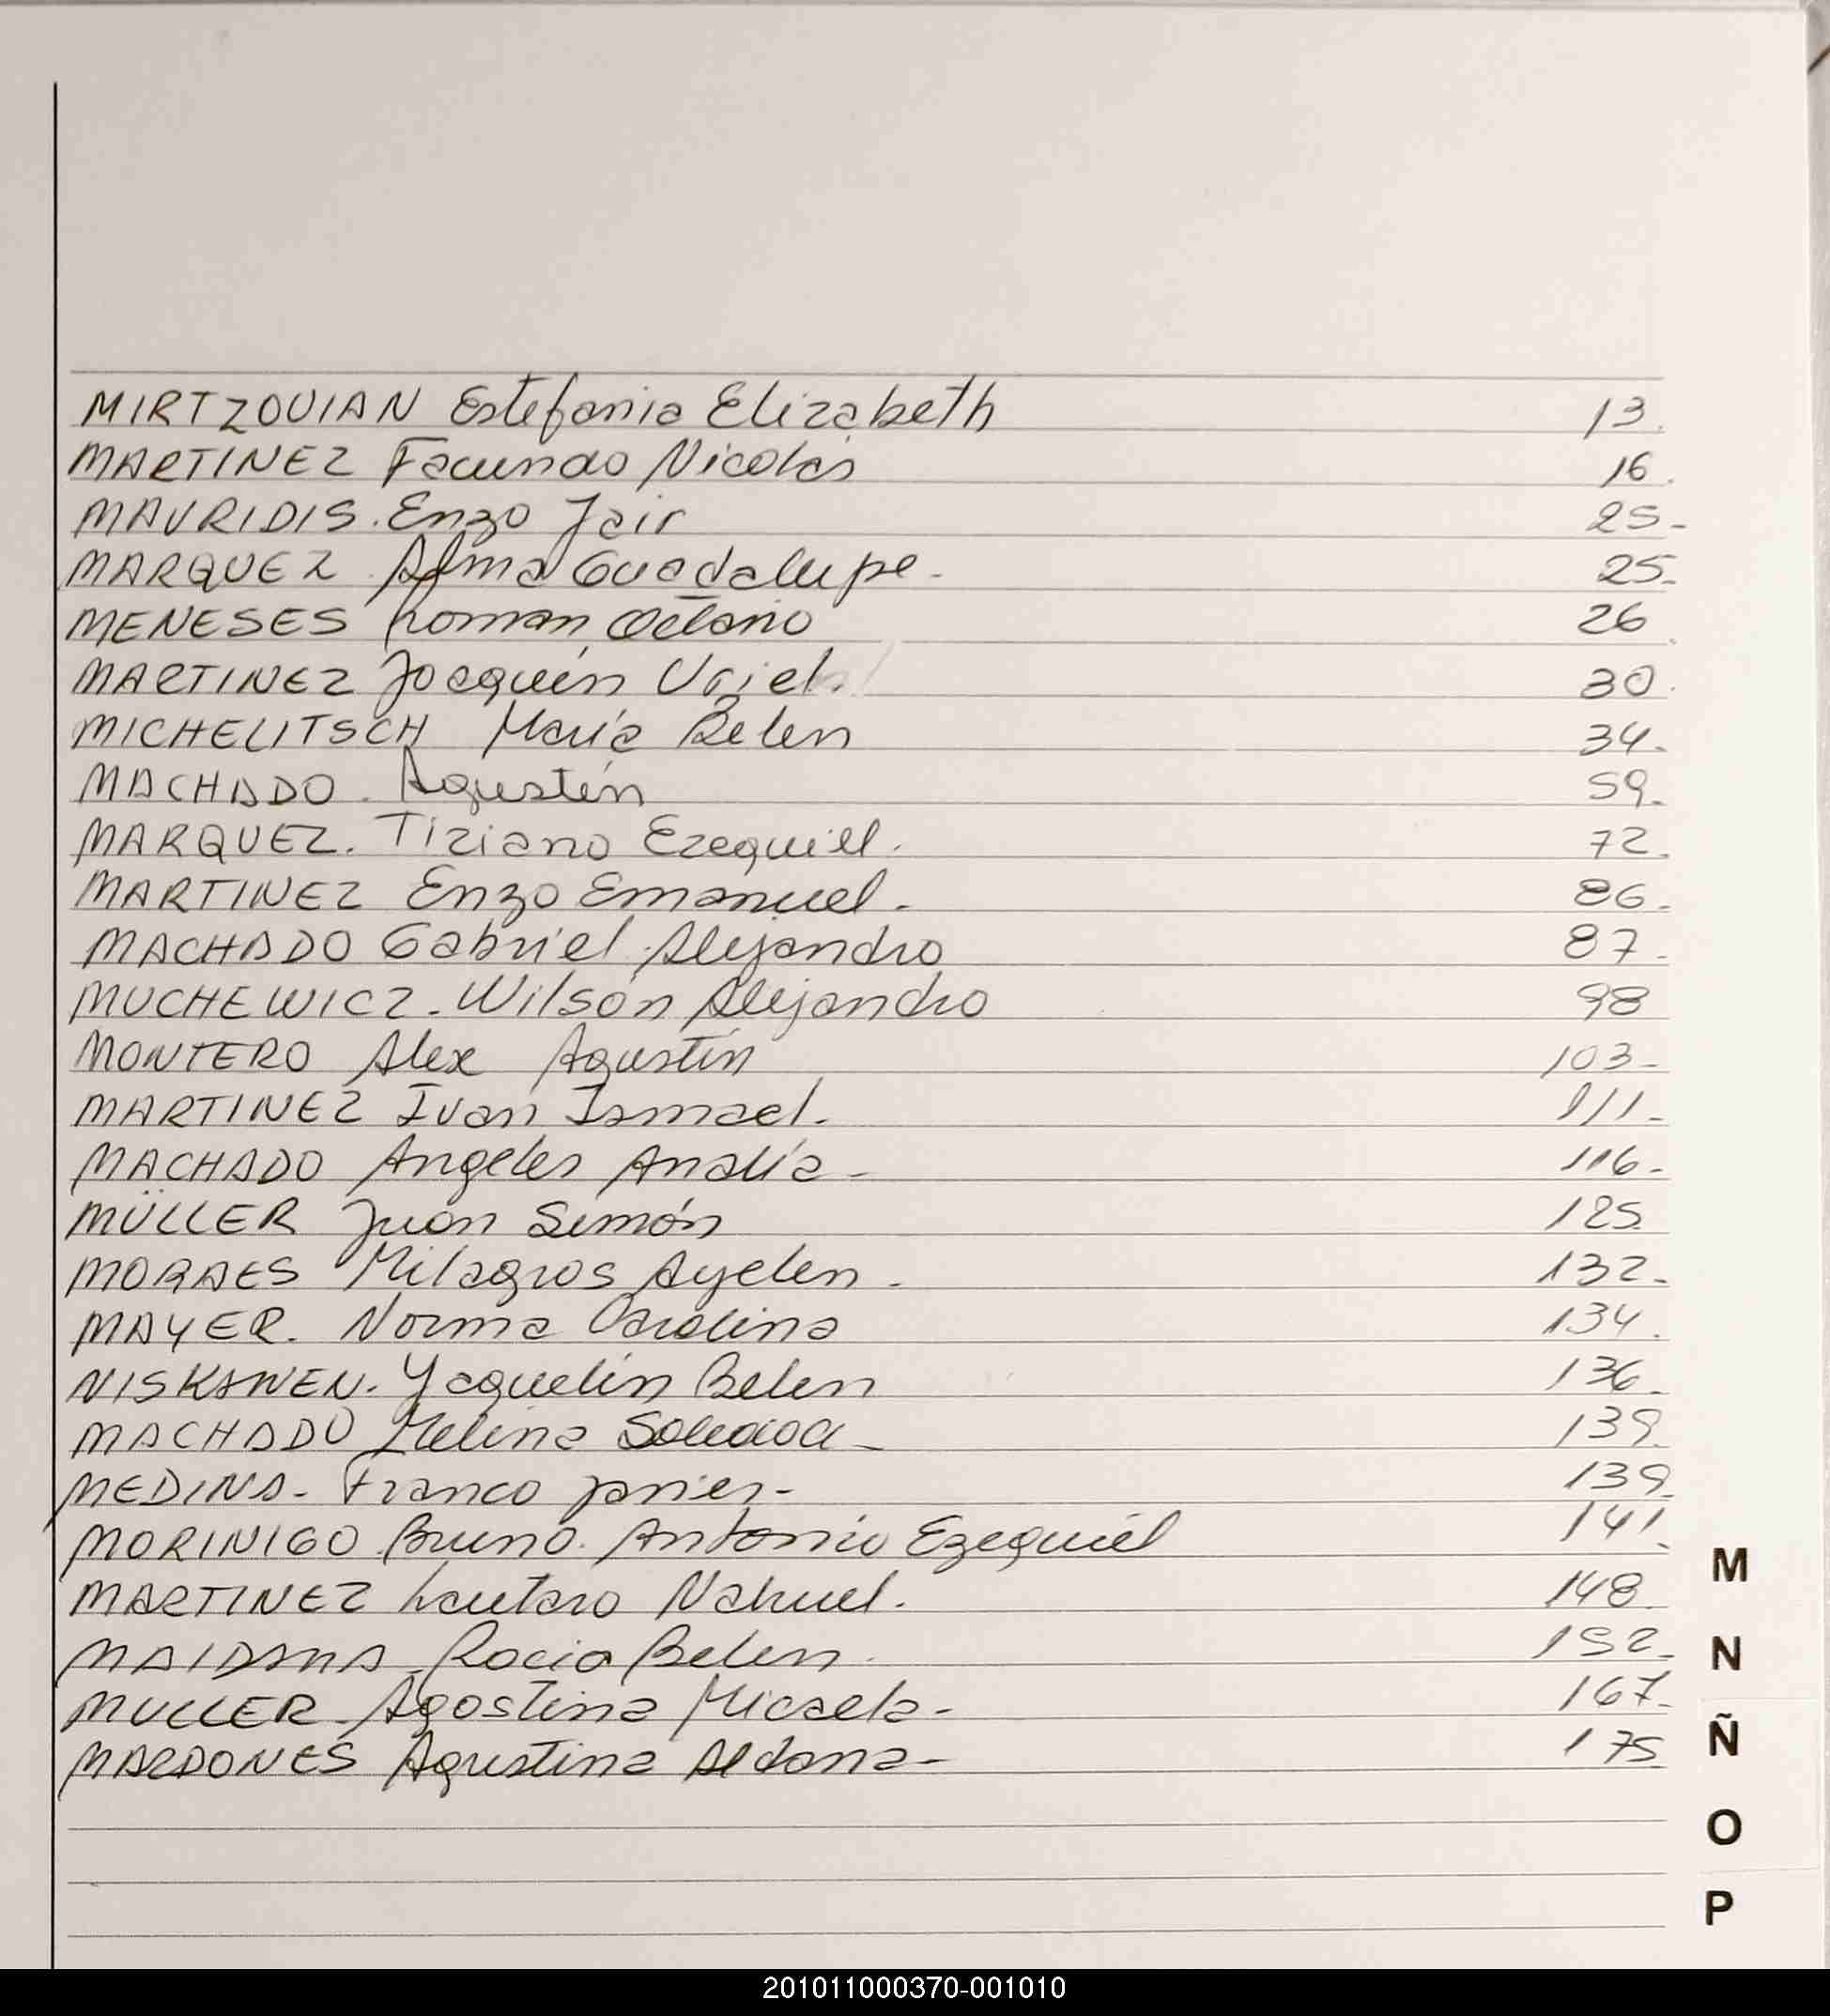 MIRTZOUIAN Estefania Elizabeth 13.
MARTINEZ Facundo Nicolas 16.
MAVRIDIS. Enzo Jair 25-
MARQUEZ Alma Guadalupe- 25-
MENESES Roman Octavio 26.
MARTINEZ Joaquín Uriel. 30.
MICHELITSCH María Belen 34-
MACHADO. Agustín 59-
MARQUEZ. Tiziano Ezequiel. 72.
MARTINEZ Enzo Emanuel- 86-
MACHADO Gabriel Alejandro 87-
MUCHEWICZ- Wilson Alejandro 98
MONTERO Alex Agustín 103-
MARTINEZ Ivan Ismael. 111-
MACHADO Angeles Analía- 116-
MÜLLER Juan Simón 125
MORAES Milagros Ayelen- 132-
MAYER. Norma Carolina 134.
NISKANEN. Yaquelín Belen 136-
MACHADO Melina Soledad- 139.
MEDINA- Franco Javier- 139.
MORINIGO Bruno. Antonio Ezequiel 141.
MARTINEZ Lautaro Nahuel. 148.
MAIDANA Rocio Belen. 152-
MULLER- Agostina Micaela- 167-
MARDONES Agustina Aldana- 175.
M
N
Ñ
O
P
201011000370-001010